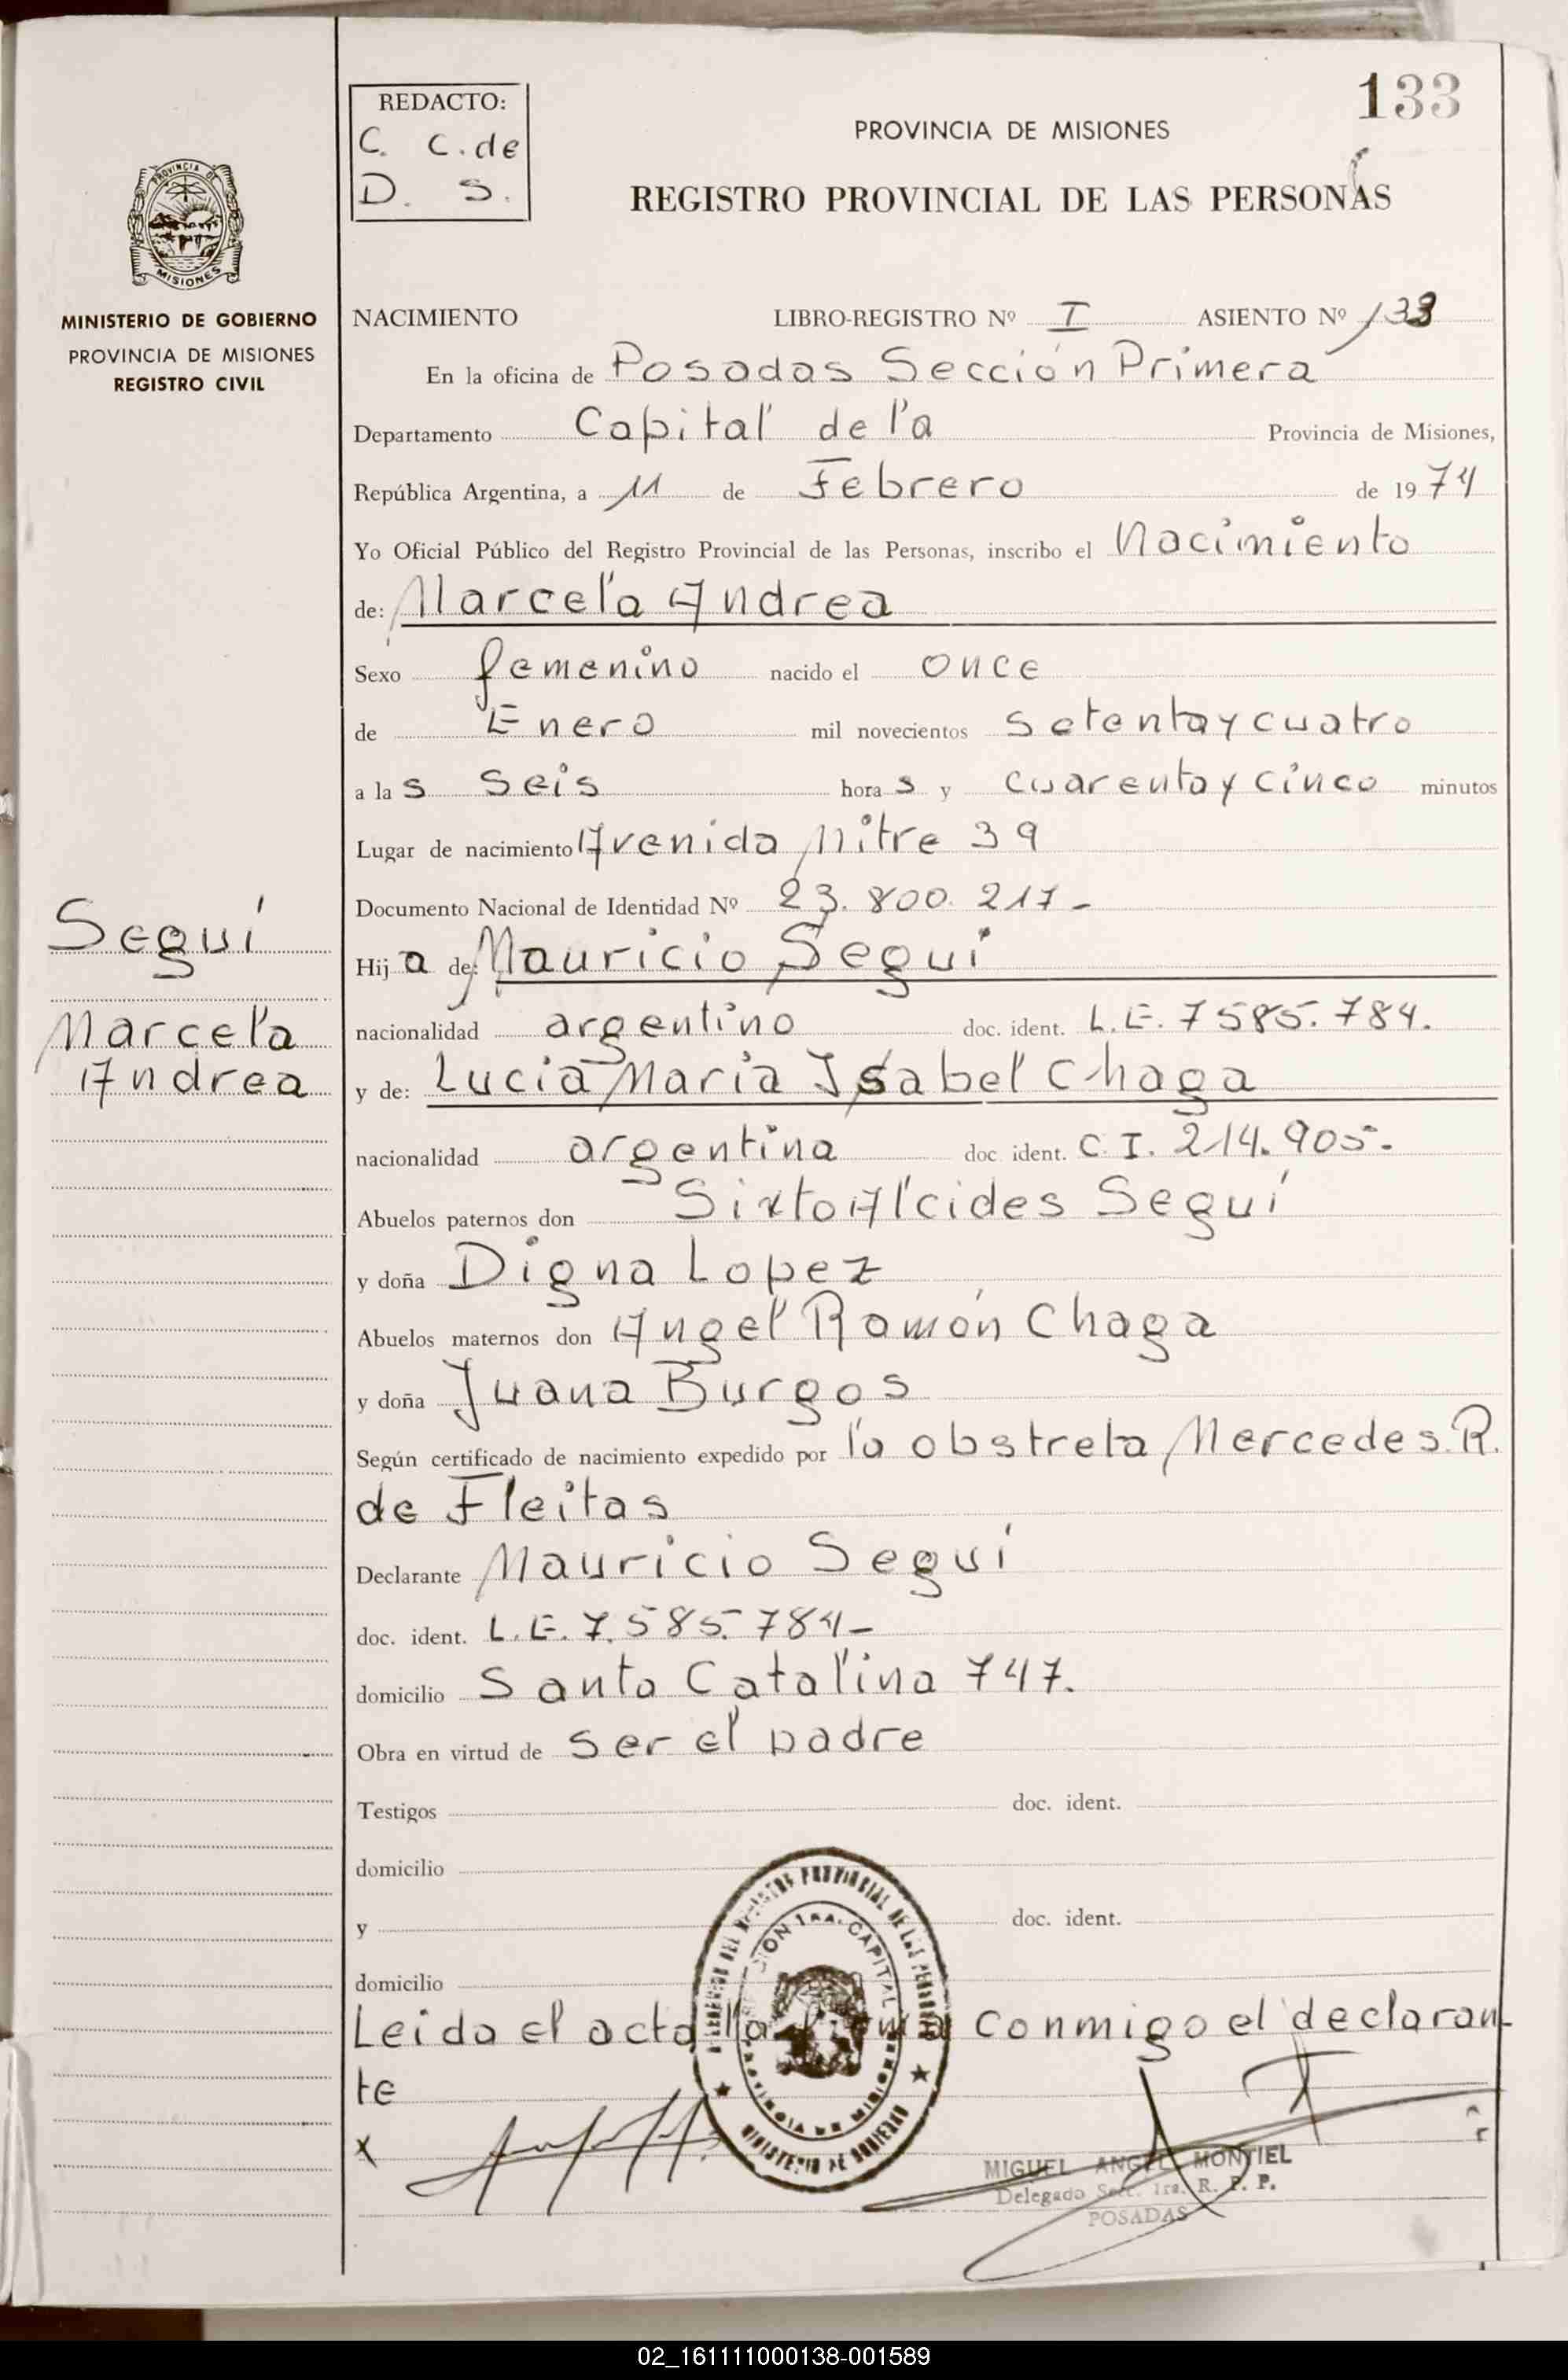 133
REDACTO:
C. C. de
D. S.
PROVINCIA DE MISIONES
REGISTRO PROVINCIAL DE LAS PERSONAS
PROVINCIA DE
MISIONES
MINISTERIO DE GOBIERNO
PROVINCIA DE MISIONES
REGISTRO CIVIL
NACIMIENTO LIBRO-REGISTRO Nº I ASIENTO Nº 133
En la oficina de Posadas Sección Primera
Departamento Capital de la Provincia de Misiones,
República Argentina, a 11 de Febrero de 1974
Yo Oficial Público del Registro Provincial de las Personas, inscribo el Nacimiento
de: Marcela Andrea
Sexo femenino nacido el once
de Enero mil novecientos setenta y cuatro
a las seis horas y cuarenta y cinco minutos
Lugar de nacimiento Avenida Mitre 39
Documento Nacional de Identidad Nº 23.800.217-
Seguí
Marcela
Andrea
Hija de: Mauricio Seguí
nacionalidad argentino doc. ident. L.E. 7585.784.
y de: Lucia Maria Isabel Chaga
nacionalidad argentina doc. ident. C.I. 214.905.
Abuelos paternos don Sixto Alcides Seguí
y doña Digna Lopez
Abuelos maternos don Angel Ramón Chaga
y doña Juana Burgos
Según certificado de nacimiento expedido por la obstreta Mercedes R.
de Fleitas
Declarante Mauricio Seguí
doc. ident. L.E. 7.585.784-
domicilio Santa Catalina 747.
Obra en virtud de ser el padre
Testigos doc. ident.
domicilio
y doc. ident.
domicilio
Leida el acta la firma conmigo el declaran-
te
x
PROVINCIAL DE LAS
1RA. CAPITAL
PROVINCIA DE MISIONES
MINISTERIO DE GOBIERNO
MIGUEL ANGEL MONTIEL
Delegado Secc. 1ra. R. P. P.
POSADAS
02_161111000138-001589